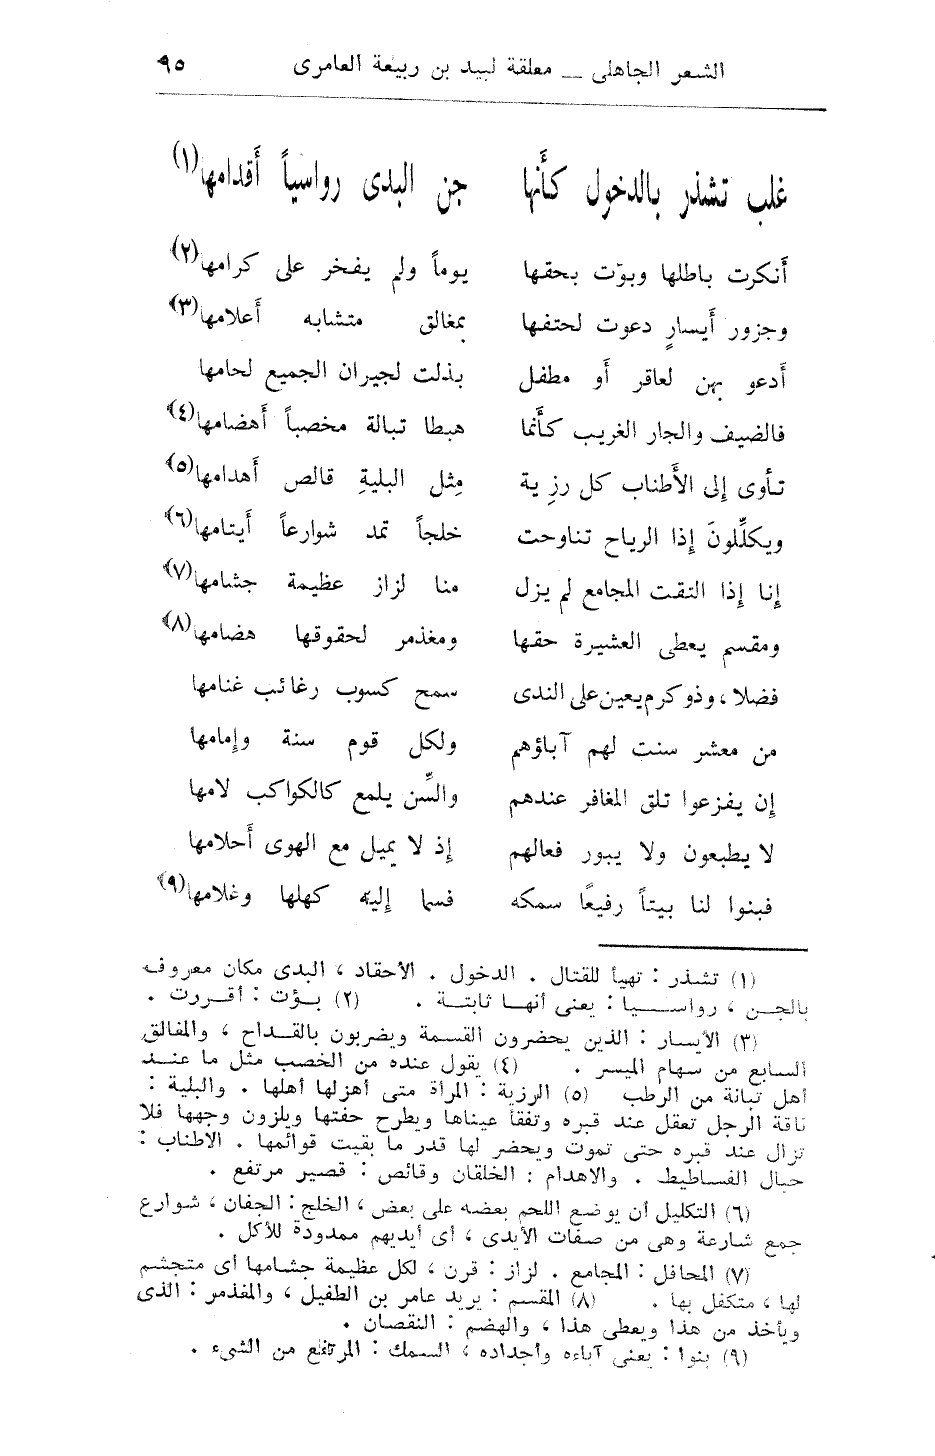 الشعر الجاهلى — معلقة لبيد بن ربيعة العامرى ٩٥
غلب تشذر بالدخول كأنها جن البدى رواسياً أقدامها(١)
أنكرت باطلها وبؤت بحقها يوماً ولم يفخر على كرامها(٢)
وجزور أيسارٍ دعوت لحتفها بمغالق متشابه أعلامها(٣)
أدعو بهن لعاقر أو مطفل بذلت لجيران الجميع لحامها
فالضيف والجار الغريب كأنما هبطا تبالة مخصباً أهضامها(٤)
تأوى إلى الأطناب كل رزية مِثل البليةِ قالص أهدامها(٥)
ويكلِّلونَ إذا الرياح تناوحت خلجاً تمد شوارعاً أيتامها(٦)
إنا إذا التقت المجامع لم يزل منا لزاز عظيمة جشامها(٧)
ومقسم يعطى العشيرة حقها ومغذمر لحقوقها هضامها(٨)
فضلا، وذو كرم يعين على الندى سمح كسوب رغائب غنامها
من معشر سنت لهم آباؤهم ولكل قوم سنة وإمامها
إن يفزعوا تلق المغافر عندهم والسِّن يلمع كالكواكب لامها
لا يطبعون ولا يبور فعالهم إذ لا يميل مع الهوى أحلامها
فبنوا لنا بيتاً رفيعًا سمكه فسما إليه كهلها وغلامها(٩)
(١) تشذر : تهيأ للقتال . الدخول . الأحقاد ، البدى مكان معروف
بالجن ، رواسيا : يعنى أنها ثابتة . (٢) بؤت : أقررت .
(٣) الأيسار : الذين يحضرون القسمة ويضربون بالقداح ، والمغالق
السابع من سهام الميسر . (٤) يقول عنده من الخصب مثل ما عند
أهل تبانة من الرطب (٥) الرزية : المرأة متى أهزلها أهلها . والبلية :
ناقة الرجل تعقل عند قبره وتفقأ عيناها ويطرح حفتها ويلزون وجهها فلا
تزال عند قبره حتى تموت ويحضر لها قدر ما بقيت قوائمها . الاطناب :
حبال الفساطيط . والاهدام : الخلقان وقائص : قصير مرتفع .
(٦) التكليل أن يوضع اللحم بعضه على بعض ، الخلج : الجفان ، شوارع
جمع شارعة وهى من صفات الأيدى ، أى أيديهم ممدودة للأكل .
(٧) المحافل : المجامع . لزاز : قرن ، لكل عظيمة جشامها أى متجشم
لها ، متكفل بها . (٨) المقسم : يريد عامر بن الطفيل ، والمغذمر : الذى
ويأخذ من هذا ويعطى هذا ، والهضم : النقصان .
(٩) بنوا : يعنى آباءه وأجداده ، السمك : المرتفع من الشىء .